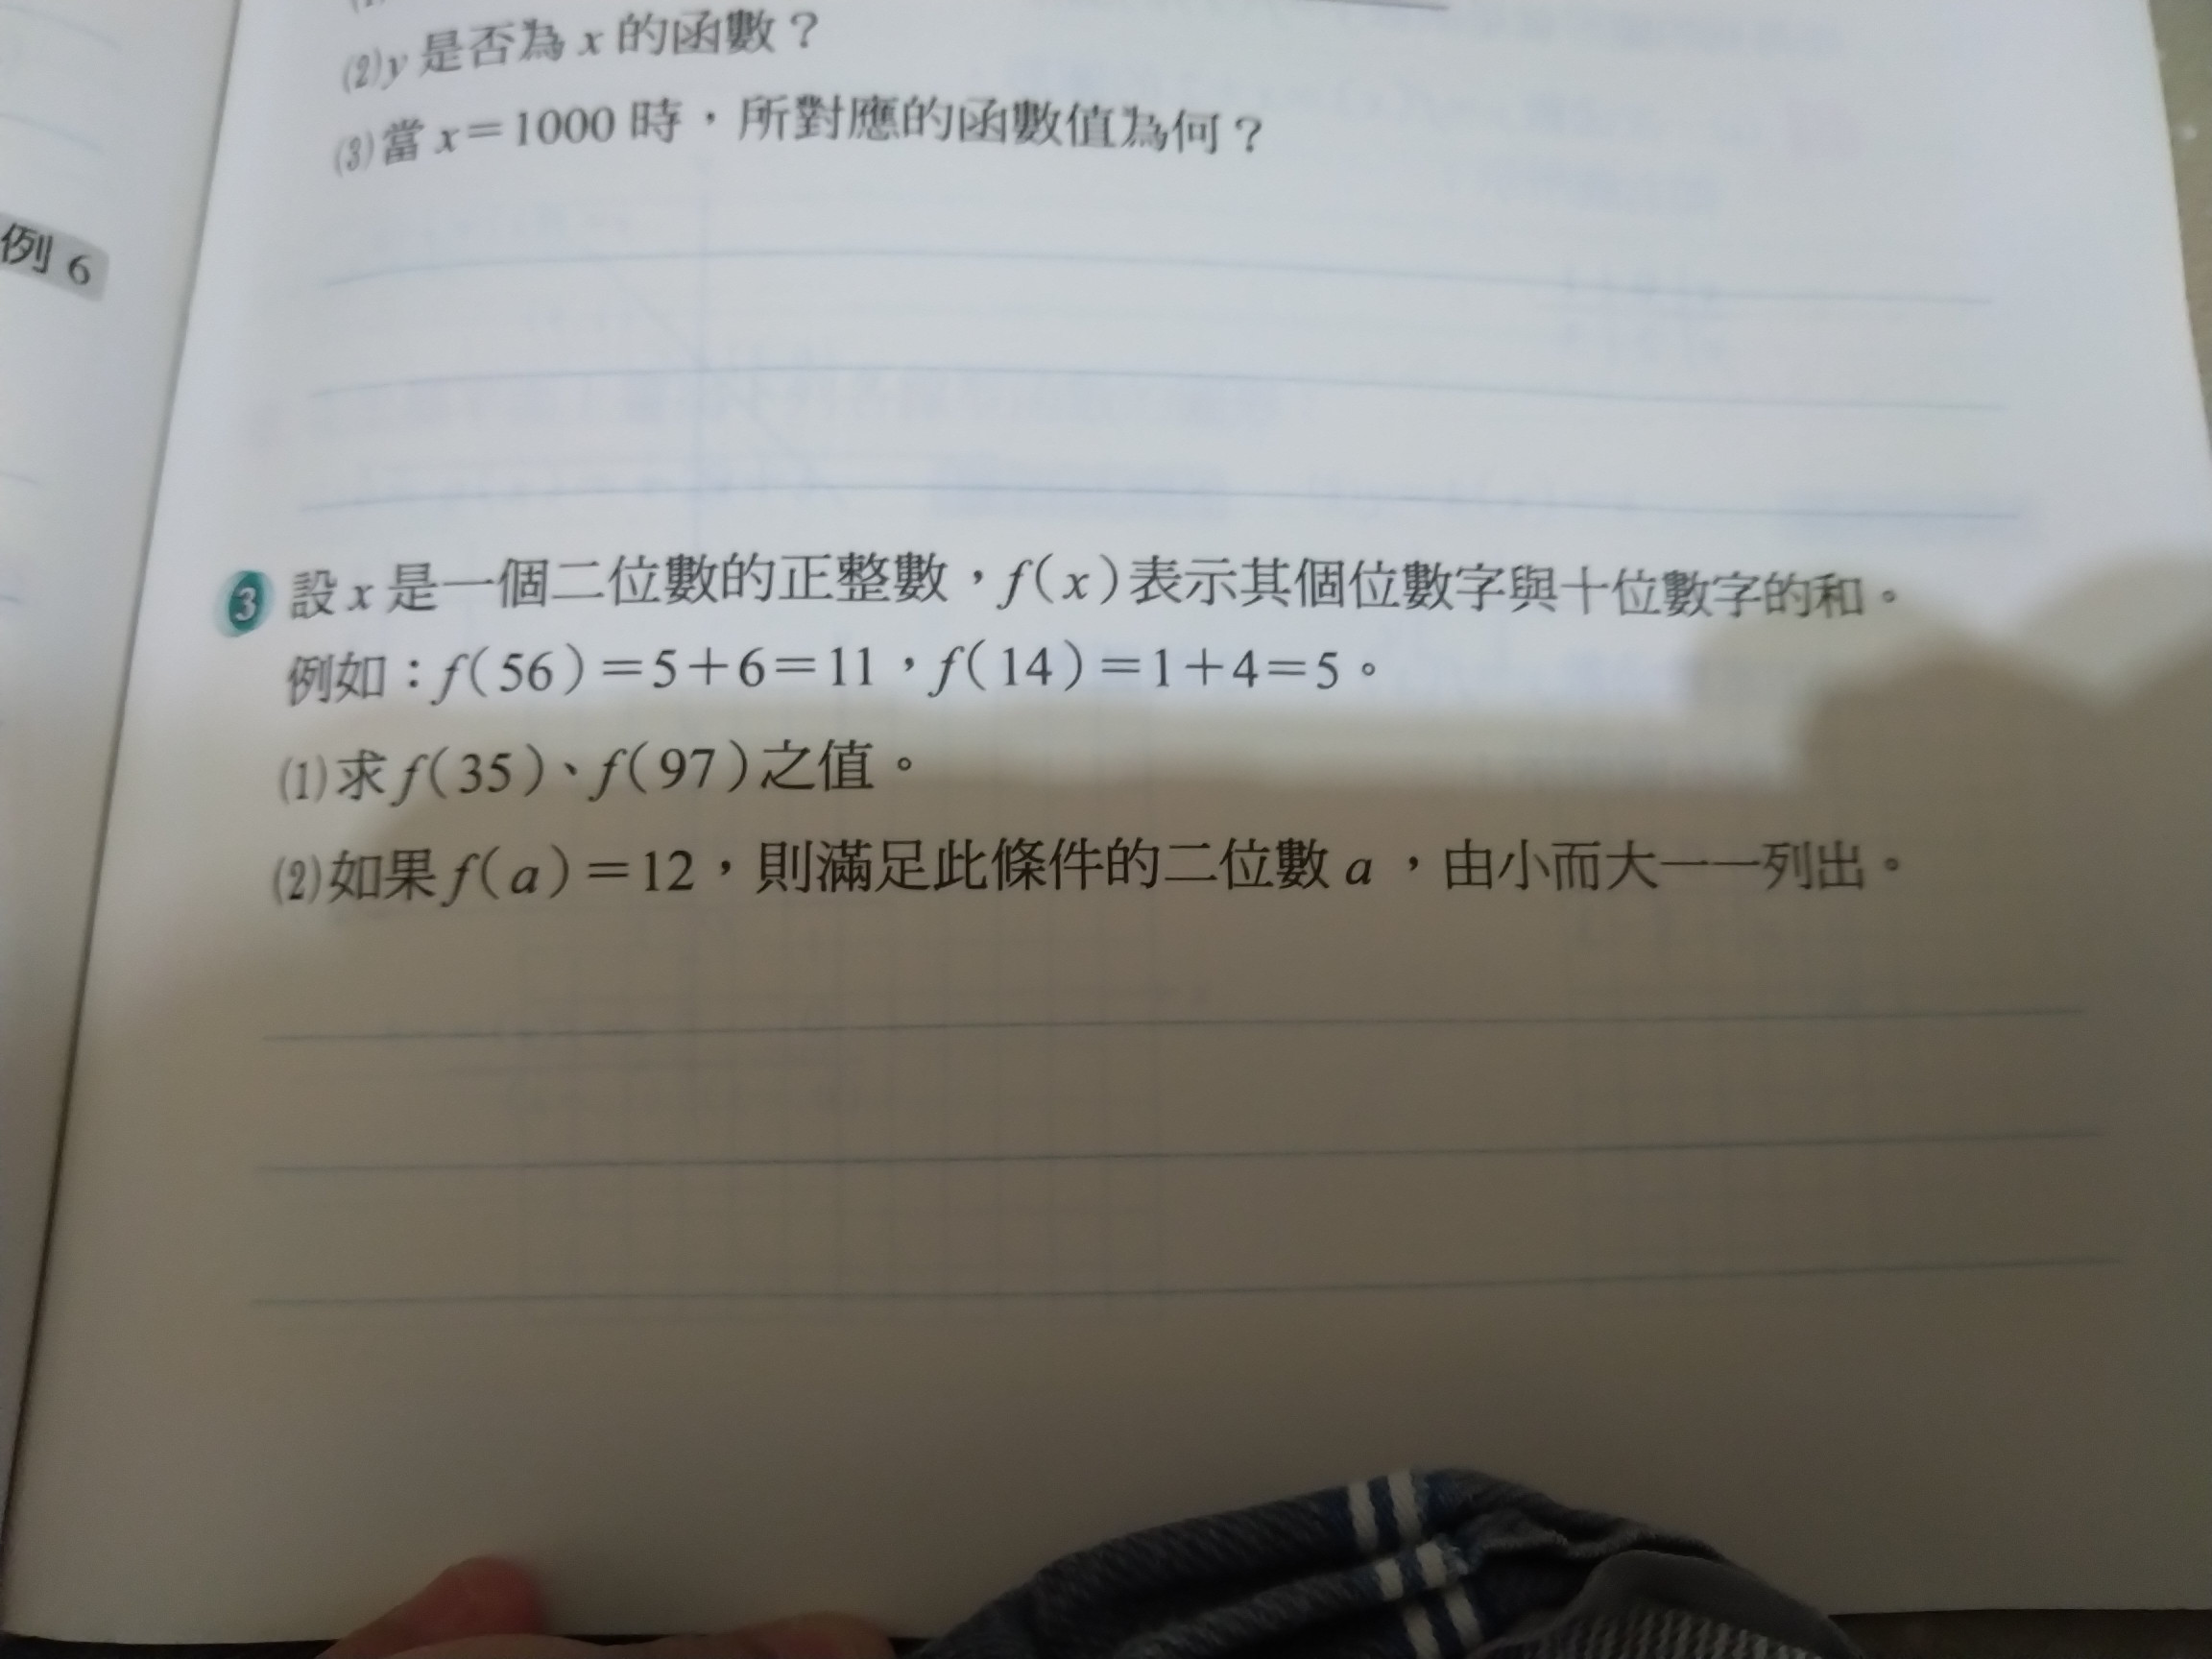 (2)y 是否為 x 的函數？
(3)當 x＝1000 時，所對應的函數值為何？
例 6
3 設 x 是一個二位數的正整數，f(x)表示其個位數字與十位數字的和。
例如：f(56)＝5＋6＝11，f(14)＝1＋4＝5。
(1)求 f(35)、f(97)之值。
(2)如果 f(a)＝12，則滿足此條件的二位數 a ，由小而大一一列出。